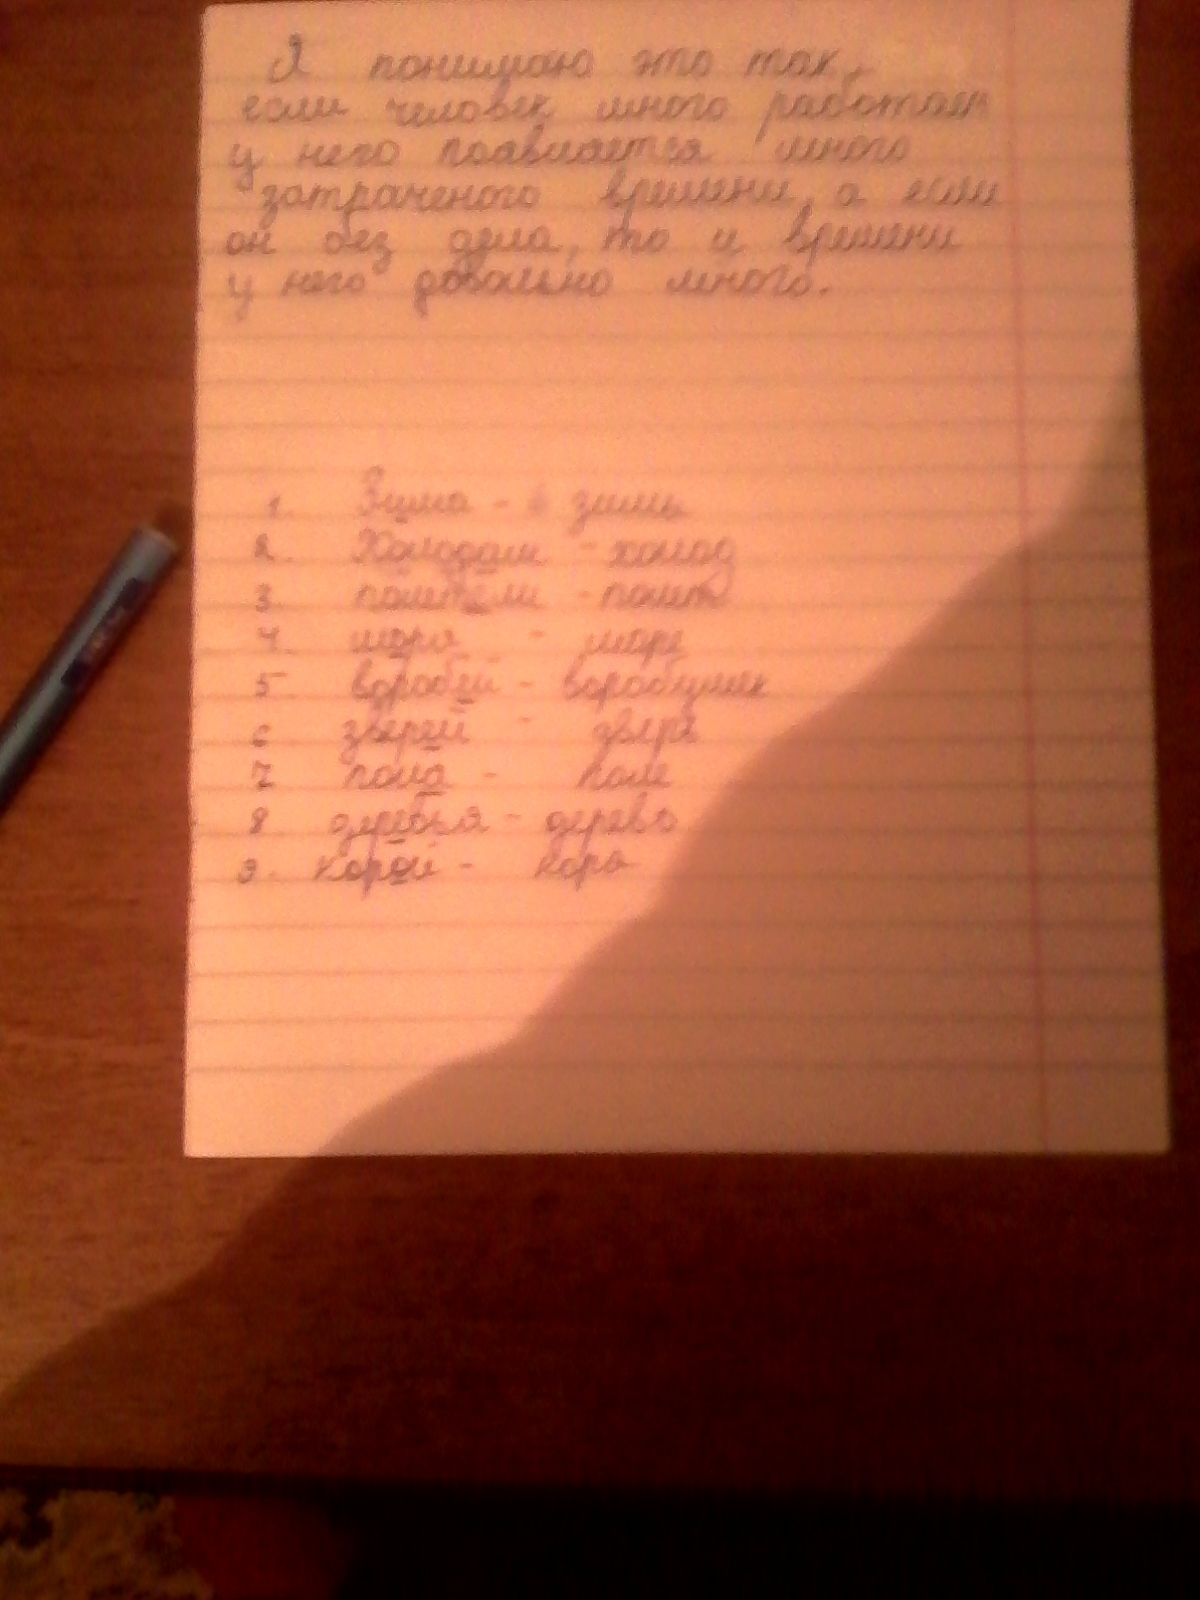 Я понимаю это так,
если человек много работает
у него появлается много
затраченого времени, а если
он без дела, то и времени
у него довольно много.
1. Зима - зимы
2. Холодам - холод
3. полетели - полёт
4. моря - море
5. воробей - воробушек
6. зверей - зверь
7. поля - поле
8. деревья - дерево
9. корой - кора